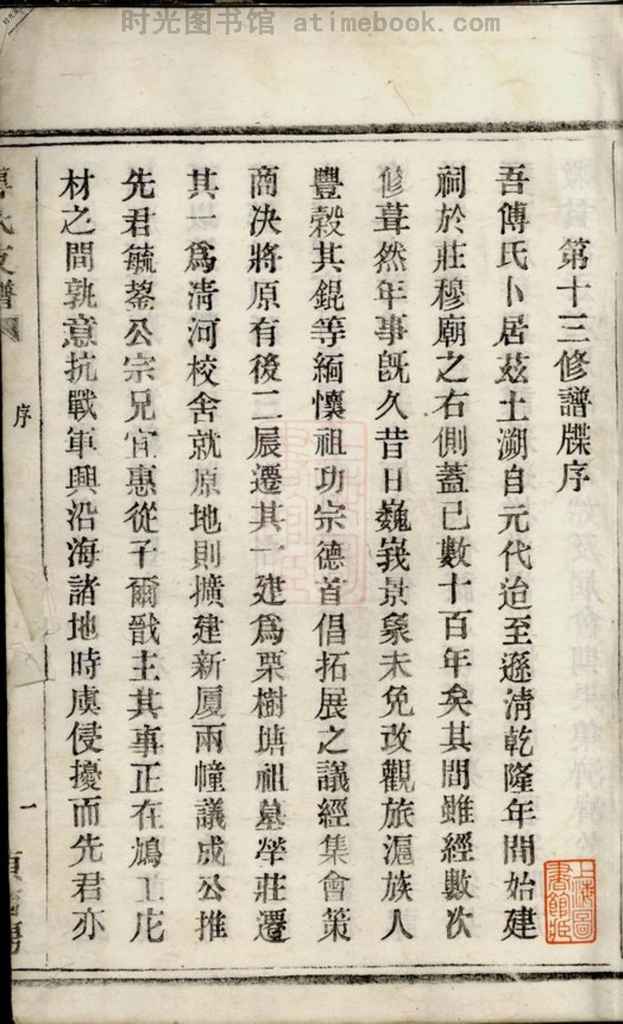 时光图书馆 atimebook.com
第十三修譜牒序
吾傅氏卜居茲土溯自元代迨至遜淸乾隆年間始建
祠於莊穆廟之右側蓋已數十百年矣其間雖經數次
修葺然年事旣久昔日巍峩景象未免改觀旅滬族人
豐穀其錕等緬懷祖功宗德首倡拓展之議經集會策
商决將原有後二屐遷其一建爲栗樹塘祖墓塋莊遷
其一爲淸河校舍就原地則擴建新厦兩幢議成公推
先君毓蓥公宗兄宜惠從子爾戩主其事正在鳩工庀
材之間孰意抗戰軍興沿海諸地時虞侵擾而先君亦
氏支譜
序
一
上海圖書館藏